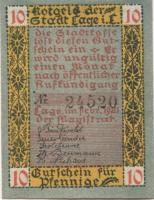 Notgeld der
Stadt Lage i. L.
10 10
die Stadtkasse
löst diesen Gut-
schein ein - Er
wird ungültig
einen Monat
nach öffentlicher
Aufkündigung
№ 24520
Lage im Febr. 1921
der Magistrat
10 10
Gutschein für
Pfennige